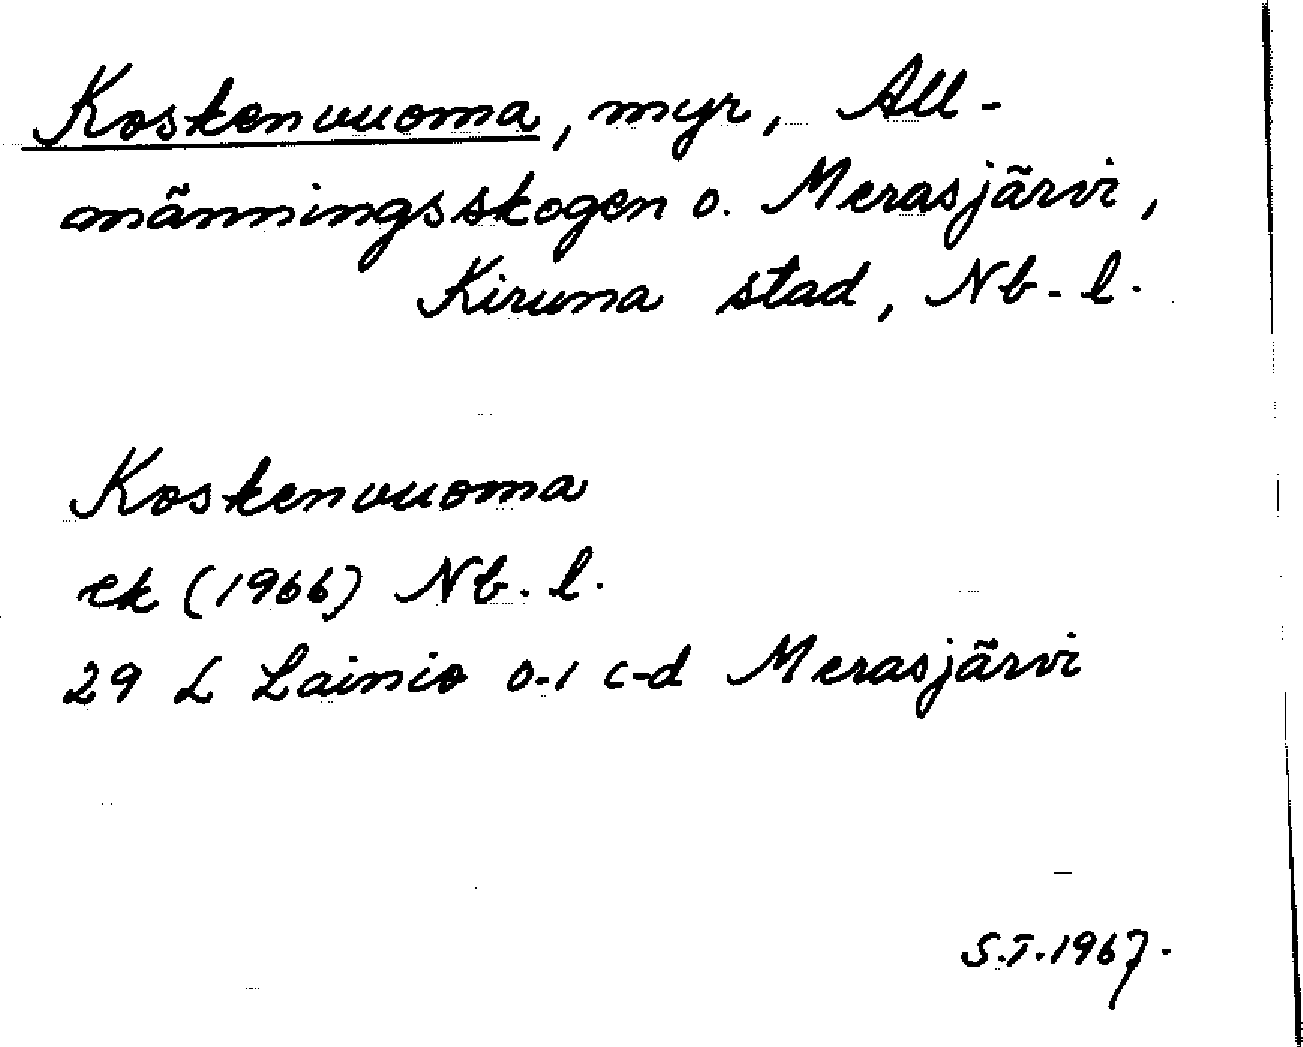 Koskenvuoma, myr, All-
männingsskogen o. Merasjärvi,
Kiruna stad, Nb. l.
Koskenvuoma
ek (1966) Nb. l.
29 L Lainio 0-1 c-d Merasjärvi
S.T. 1967.